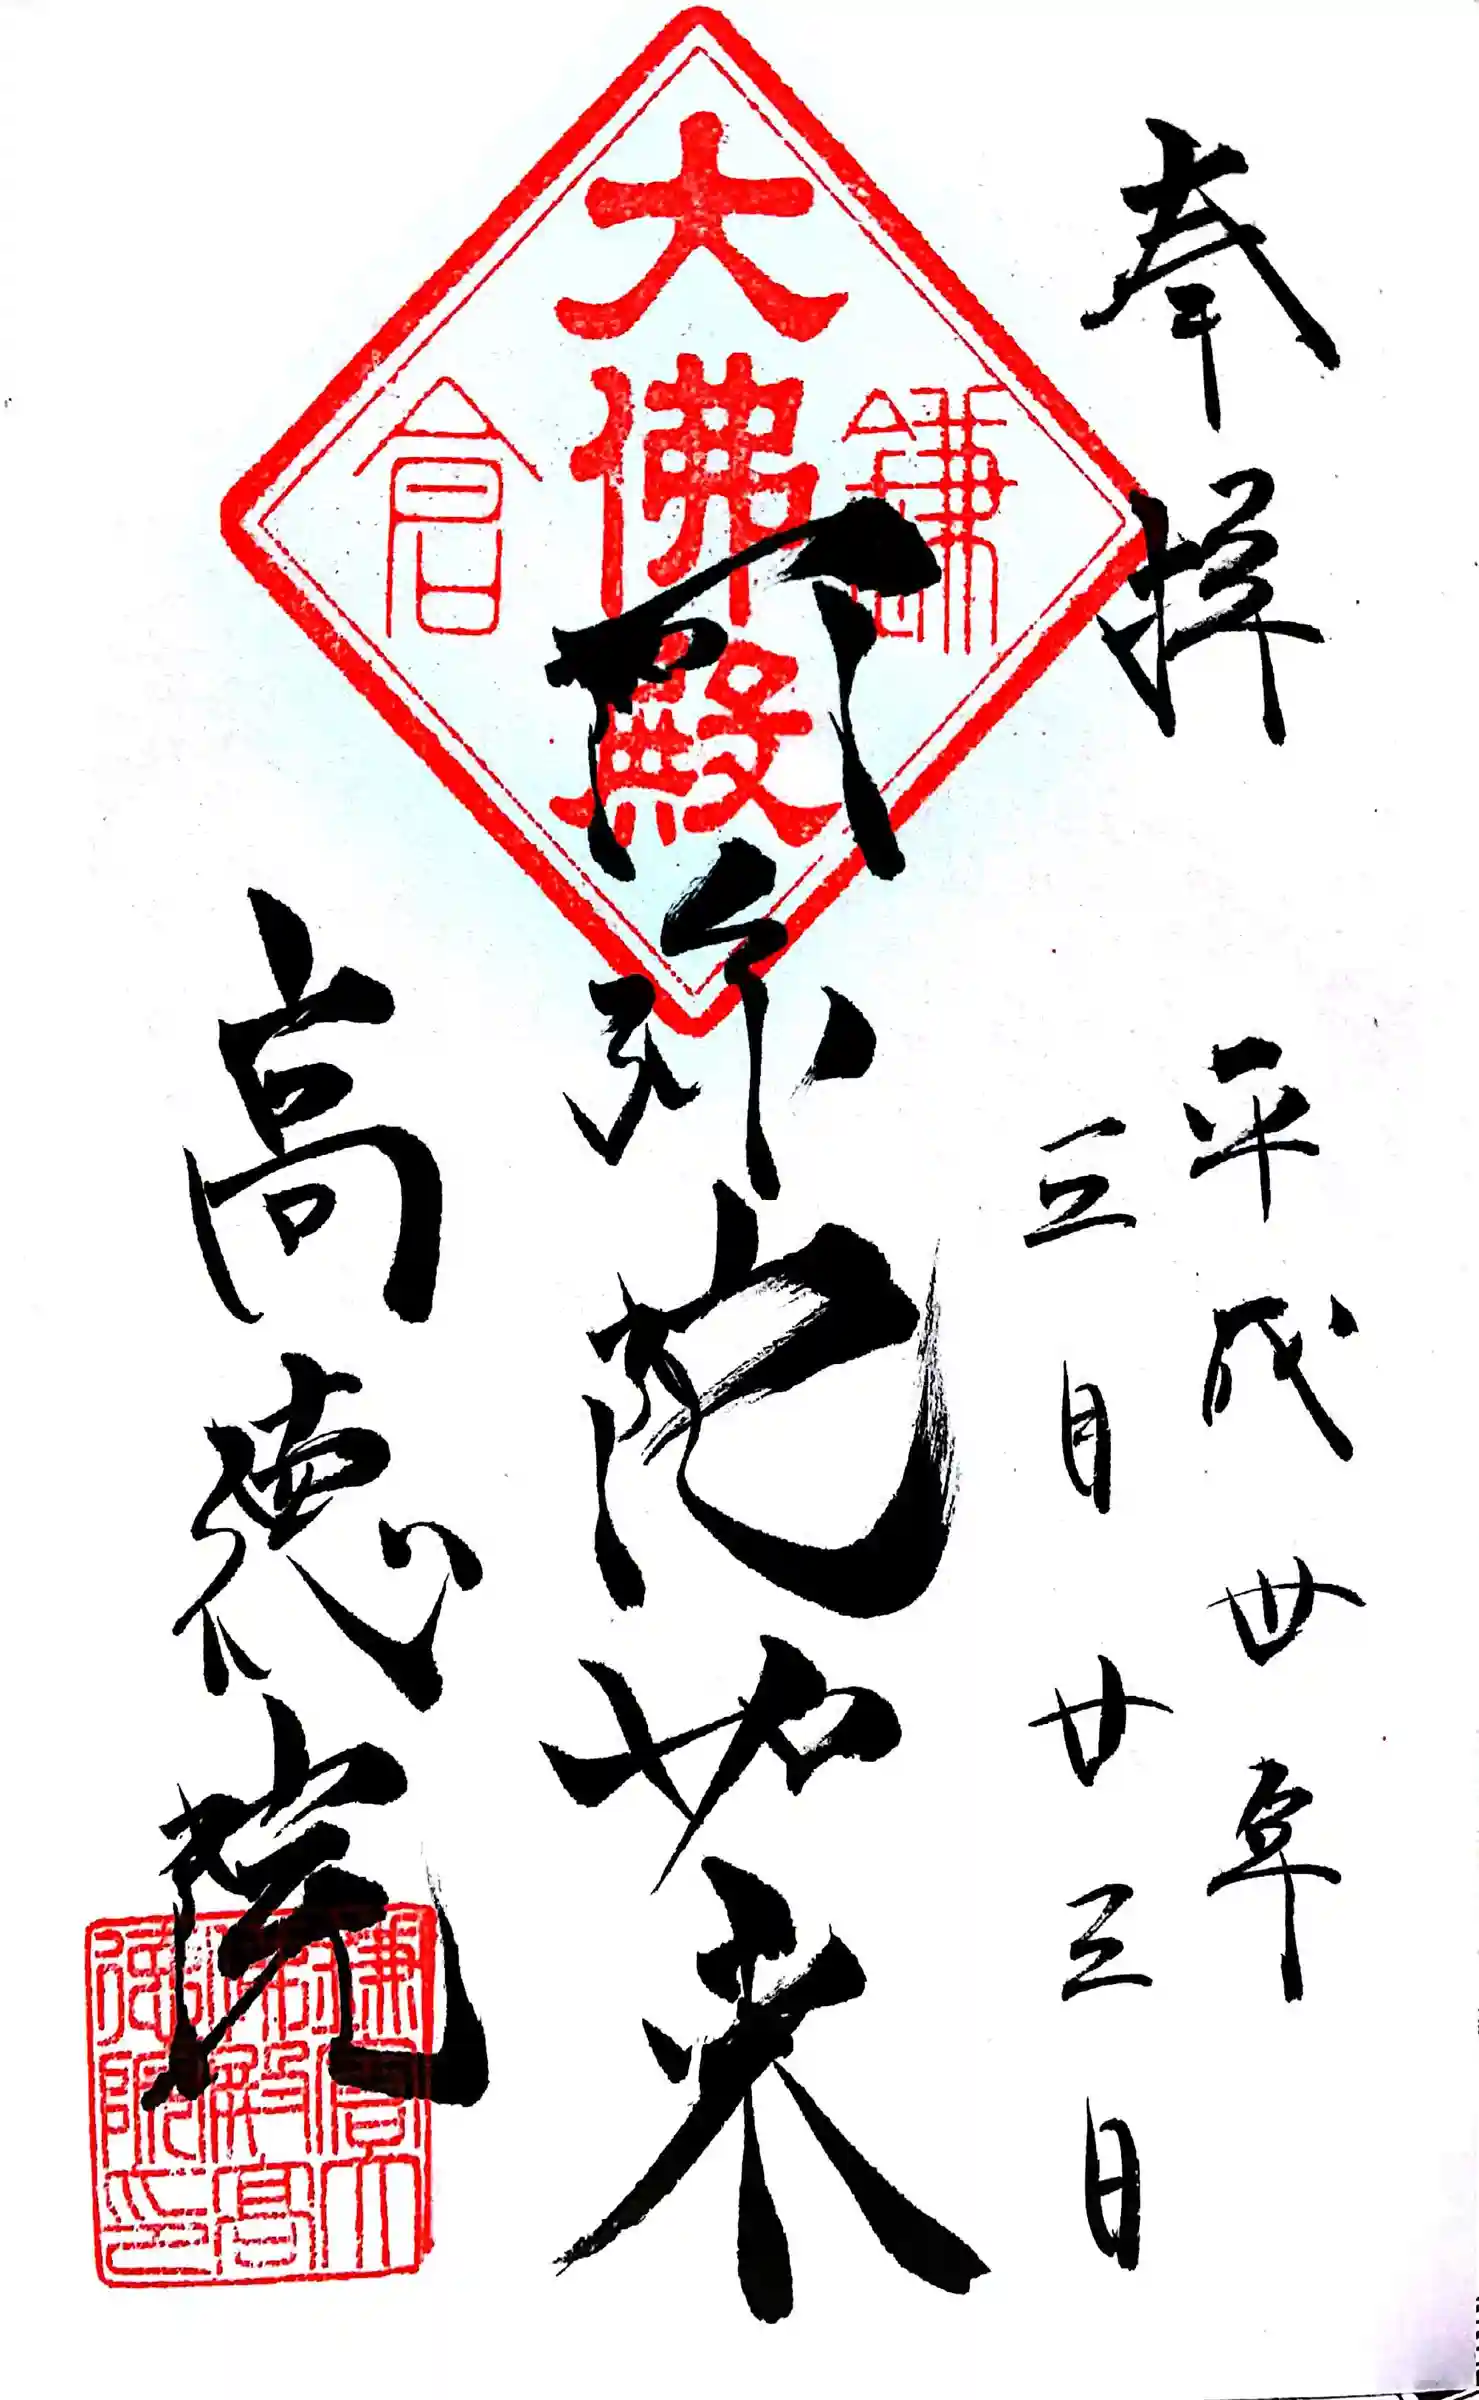 奉拝
平成卅年
三月廿三日
鎌倉
大佛殿
阿弥陀如来
高徳院
鎌倉大
佛殿高
徳院印